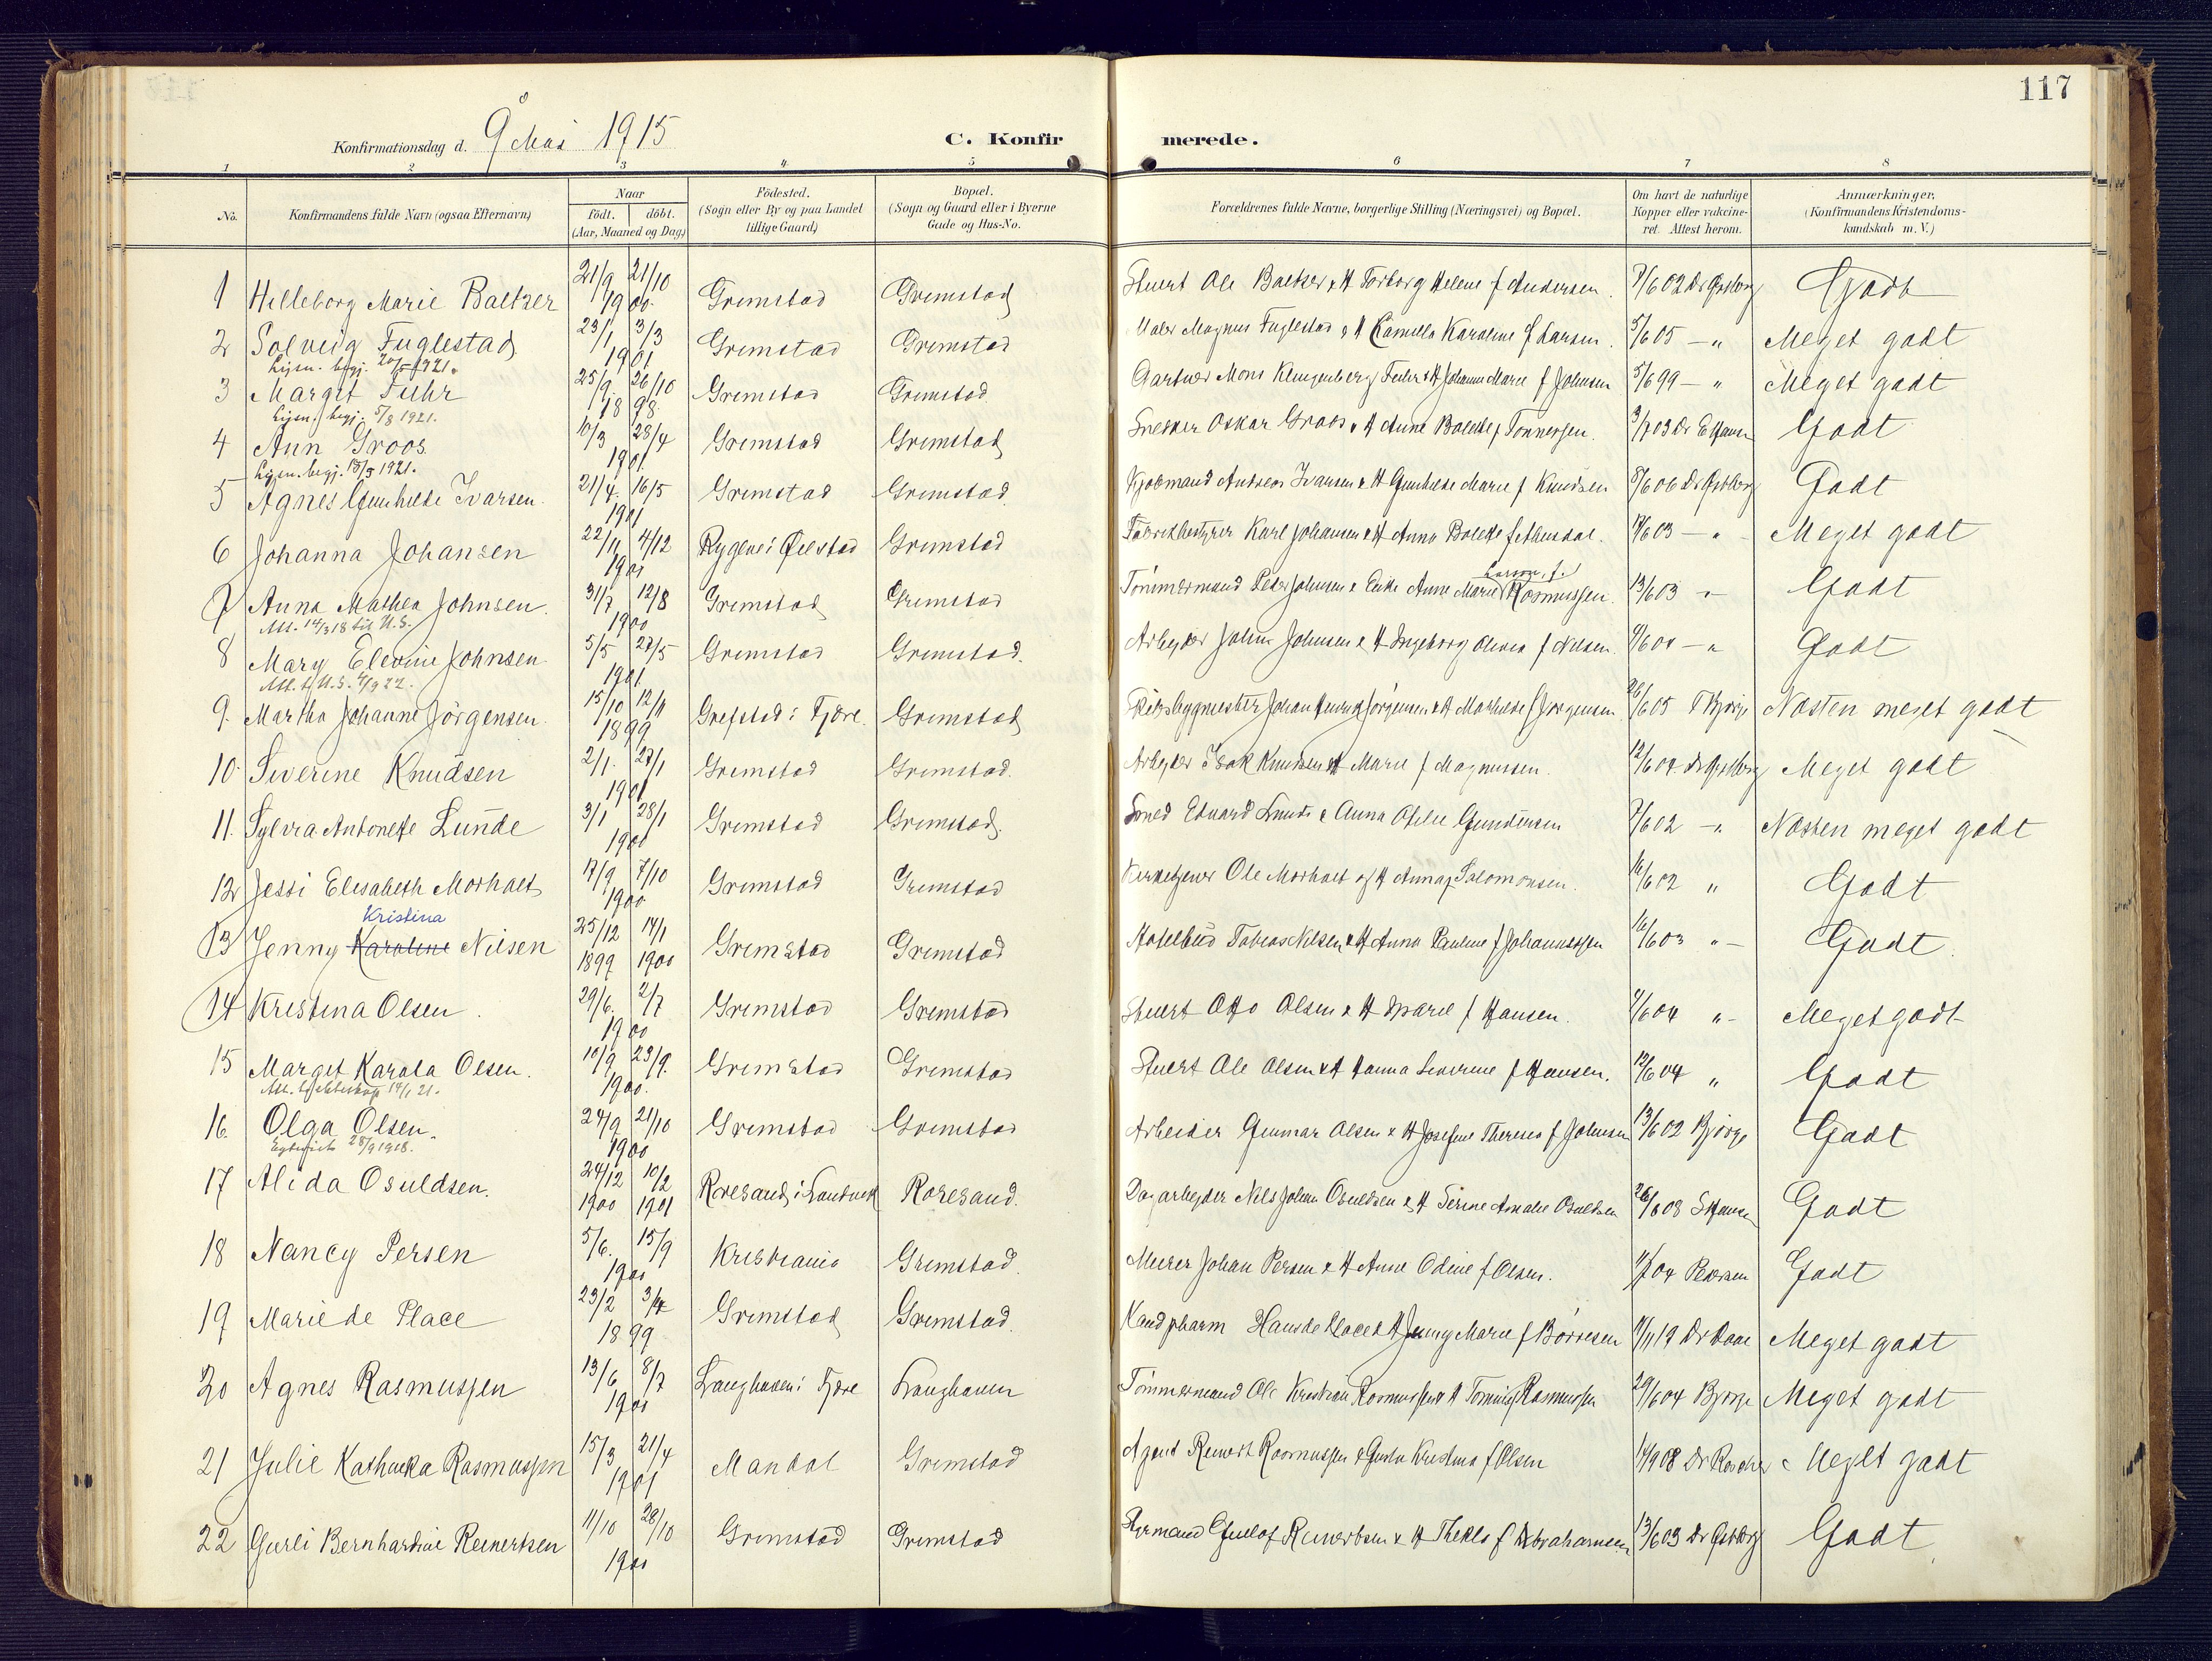 117
Konfirmationsdag d. 9 Mai 1915
C. Konfirmerede.
1 2 3 4 5 6 7 8
No. Konfirmandens fulde Navn (ogsaa Efternavn) Naar födt. döbt. (Aar, Maaned og Dag.) Födested. (Sogn eller By og paa Landet tillige Gaard) Bopæl. (Sogn og Gaard eller i Byerne Gade og Hus-No. Forældrenes fulde Navne, borgerlige Stilling (Næringsvei) og Bopæl. Om havt de naturlige Kopper eller vakcineret. Attest herom. Anmærkninger. (Konfirmandens Kristendomskundskab m. V.)
1 Hilleborg Marie Baltzer 21/9 21/10 1900 Grimstad Grimstad Stuert Ole Baltzer & H Torborg Helene f Andersen. 7/6 02 Godt
2 Solveig Fuglestad 23/1 3/3 1901 Grimstad Grimstad Maler Magnus Fuglestad & H Camilla Karoline f Larsen. 5/6 05 — " Meget godt
Lysn. begj. 1921.
3 Margit Fuhr 25/9 26/10 1898 Grimstad Grimstad Gartner Mons Klingenberg Fuhr & H Johanne Marie f Johnsen 5/6 99 — " Meget godt
Lysn. begj. 5/8 1921.
4 Ann Groos 10/3 28/4 1901 Grimstad Grimstad Snekker Oskar Groos & H Anna Bolette f Tönnessen. 3/7 03 Dr E Hansen Godt
Lysn. begj. 18/5 1921.
5 Agnes Gunhilde Ivarsen 21/4 16/5 1901 Grimstad Grimstad Kjøbmand Andreas Ivarsen & H Gunhilde Marie f Knudsen 8/6 06 Godt
6 Johanna Johansen 22/11 4/12 1900 Rygene i Øiestad Grimstad Fabrikbestyrer Karl Johansen & H Anna Bolette f 03 — " Meget godt
7 Anna Mathea Johnsen 31/7 12/8 1900 Grimstad Grimstad Tömmermand Peder Johnsen & Enke Anne Marie Larsen, f. Rasmussen. 13/6 03 " Godt
Att. 14/3 18 til U.S.
8 Mary Elevine Johnsen 5/5 27/5 1901 Grimstad Grimstad. Arbeider Johan Johnsen & H Ingeborg Olivia f Nilsen. — " Godt
Att. t. U.S. 4/9 22.
9. Martha Johanne Jörgensen 15/10 12/11 1899 Grefstad i Fjære Grimstad Johan Jörgensen & H Mathilde f Jörgensen 05 Næsten meget godt
10 Siverine Knudsen 2/1 27/1 1901 Grimstad Grimstad. Arbeider Isak Knudsen & H Marie f Magnussen. 12/6 04 Meget godt
11. Sylvia Antonette Lunde 3/1 28/1 1901 Grimstad Grimstad. Smed Edvard Lunde & Anna Otilie Gundersen 7/6 02 — " Næsten meget godt
12 Jessi Elisabeth Morholt 17/9 7/10 1900 Grimstad Grimstad Kirketjener Ole Morholt og H Anna f Salomonsen. 16/6 02 " Godt
13 Jenny Karoline Kristina Nilsen 25/12 1899 14/1 1900 Grimstad Grimstad Hotelbud Tobias Nilsen & H Anna Pauline f Johannessen 16/6 03 " Godt.
14 Kristina Olsen 29/6 2/7 1900 Grimstad Grimstad Stuert Otto Olsen & H Marie f Hansen. 04 " Meget godt
15 Margit Karola Olsen. 10/9 23/9 1900. Grimstad Grimstad Stuert Ole Olsen & H Hanna Siverine f Hansen. 12/6 04 " Godt
Att. t. 14/1 21.
16. Olga Olsen. 24/9 21/10 1900 Grimstad Grimstad Arbeider Gunnar Olsen & H Josefine Theresia f Johnsen 13/6 02 Bjorge Godt
28/9 1918.
17 Alida Osuldsen. 24/12 1900 10/2 1901 Roresand i Landvik Roresand. Dagarbeider Nils Johan Osuldsen & H Serine Amalie Osuldsen 26/6 08 S Hansen Godt
18 Nancy Persen 5/6. 15/9 1901 Kristiania Grimstad. Murer Johan Persen & H Anne Odine f Olsen. 04 Pedersen Godt
19 Marie de Place 23/2 3/4 1899 Grimstad Grimstad. Kand pharm Hans de Place & H Jenny Marie f Börresen Dr Daae Meget godt
20 Agnes Rasmussen 13/6 8/7 1900 Langhaven i Fjære Langhaven Tömmermand Ole Kristian Rasmussen & H f Rasmussen 29/6 04 Bjorge Meget godt
21 Julie Kathinka Rasmussen 15/3 21/4 1901 Mandal Grimstad Agent Reinert Rasmussen & Kristina f Olsen 14/9 08 Meget godt
22 Gurli Bernhardine Reinertsen 11/10 28/10 1900 Grimstad Grimstad Styrmand Gullof Reinertsen & H Thekla f Abrahamsen 13/6 03 Godt